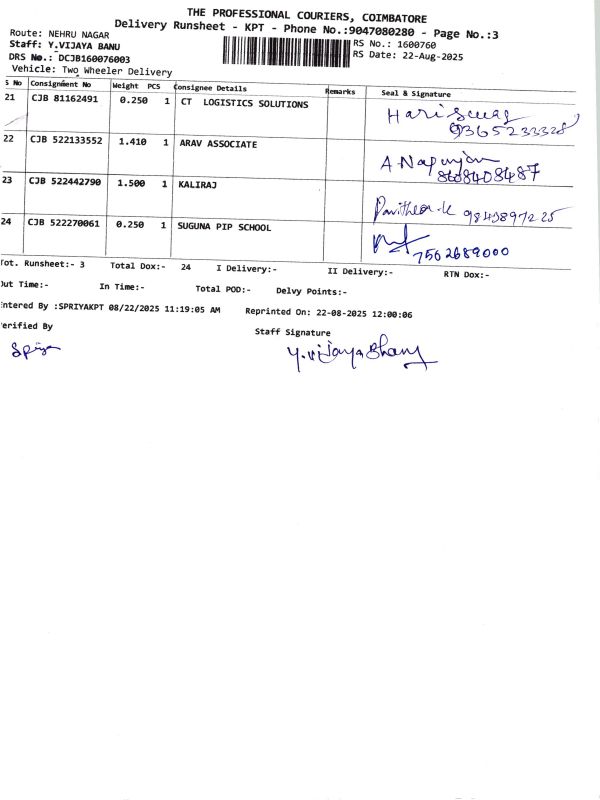 THE PROFESSIONAL COURIERS, COIMBATORE
Delivery Runsheet - KPT - Phone No.:9047080280 - Page No.:3
Route: NEHRU NAGAR
Staff: Y.VIJAYA BANU
RS No.: 1600760
DRS No.: DCJB160076003
RS Date: 22-Aug-2025
Vehicle: Two Wheeler Delivery
S No Consignment No Weight PCS Consignee Details Remarks Seal & Signature
21 CJB 81162491 0.250 1 CT LOGISTICS SOLUTIONS
9365233328
22 CJB 522133552 1.410 1 ARAV ASSOCIATE
8608408487
23 CJB 522442790 1.500 1 KALIRAJ
24 CJB 522270061 0.250 1 SUGUNA PIP SCHOOL
7502689000
Tot. Runsheet:- 3 Total Dox:- 24 I Delivery:- II Delivery:- RTN Dox:-
Out Time:- In Time:- Total POD:- Delvy Points:-
Entered By :SPRIYAKPT 08/22/2025 11:19:05 AM Reprinted On: 22-08-2025 12:00:06
Verified By
Staff Signature
Spriya